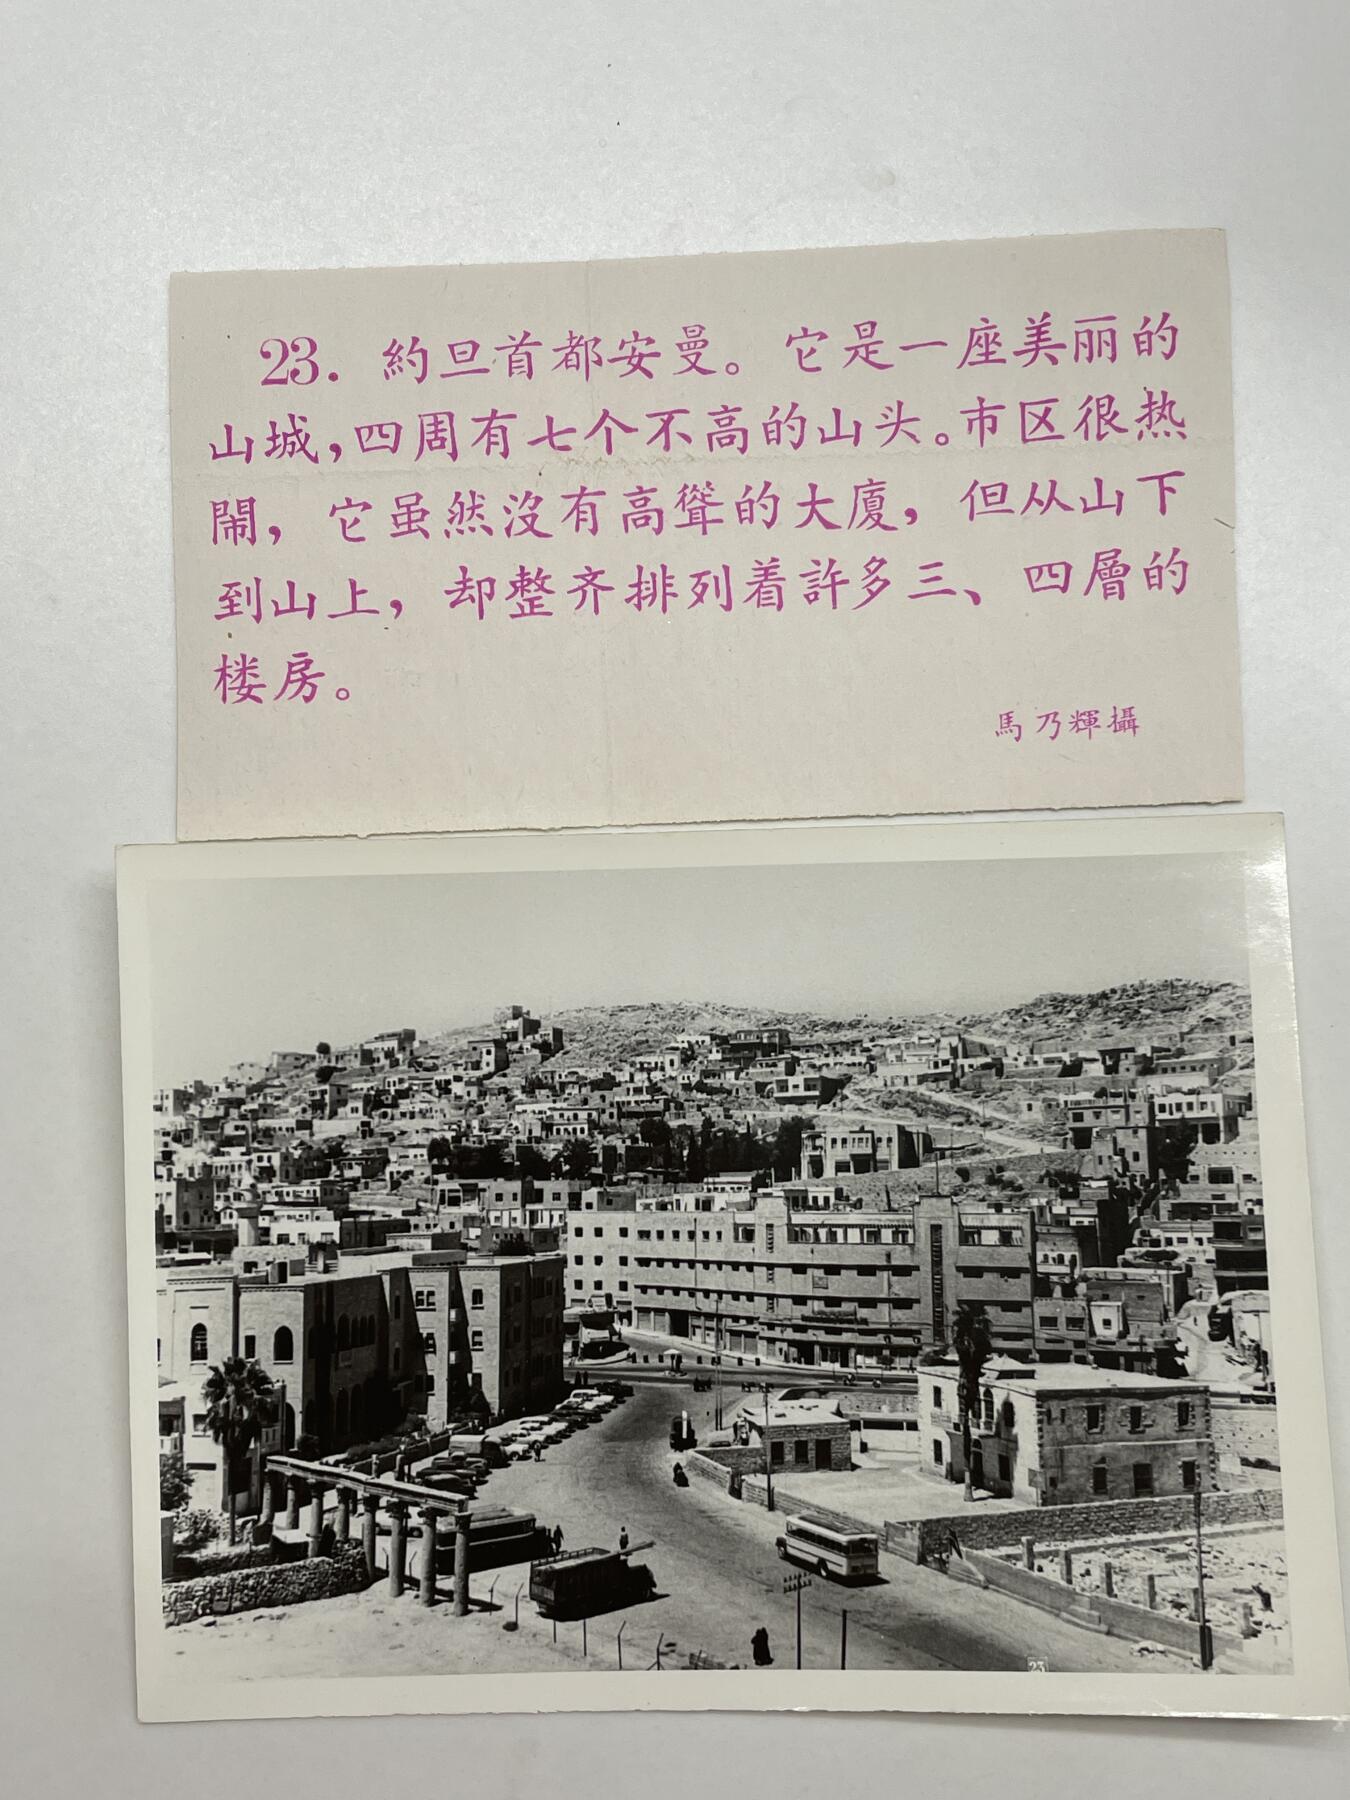 23. 約旦首都安曼。它是一座美丽的
山城，四周有七个不高的山头。市区很热
鬧，它虽然沒有高聳的大廈，但从山下
到山上，却整齐排列着許多三、四層的
楼房。
馬乃輝攝
23